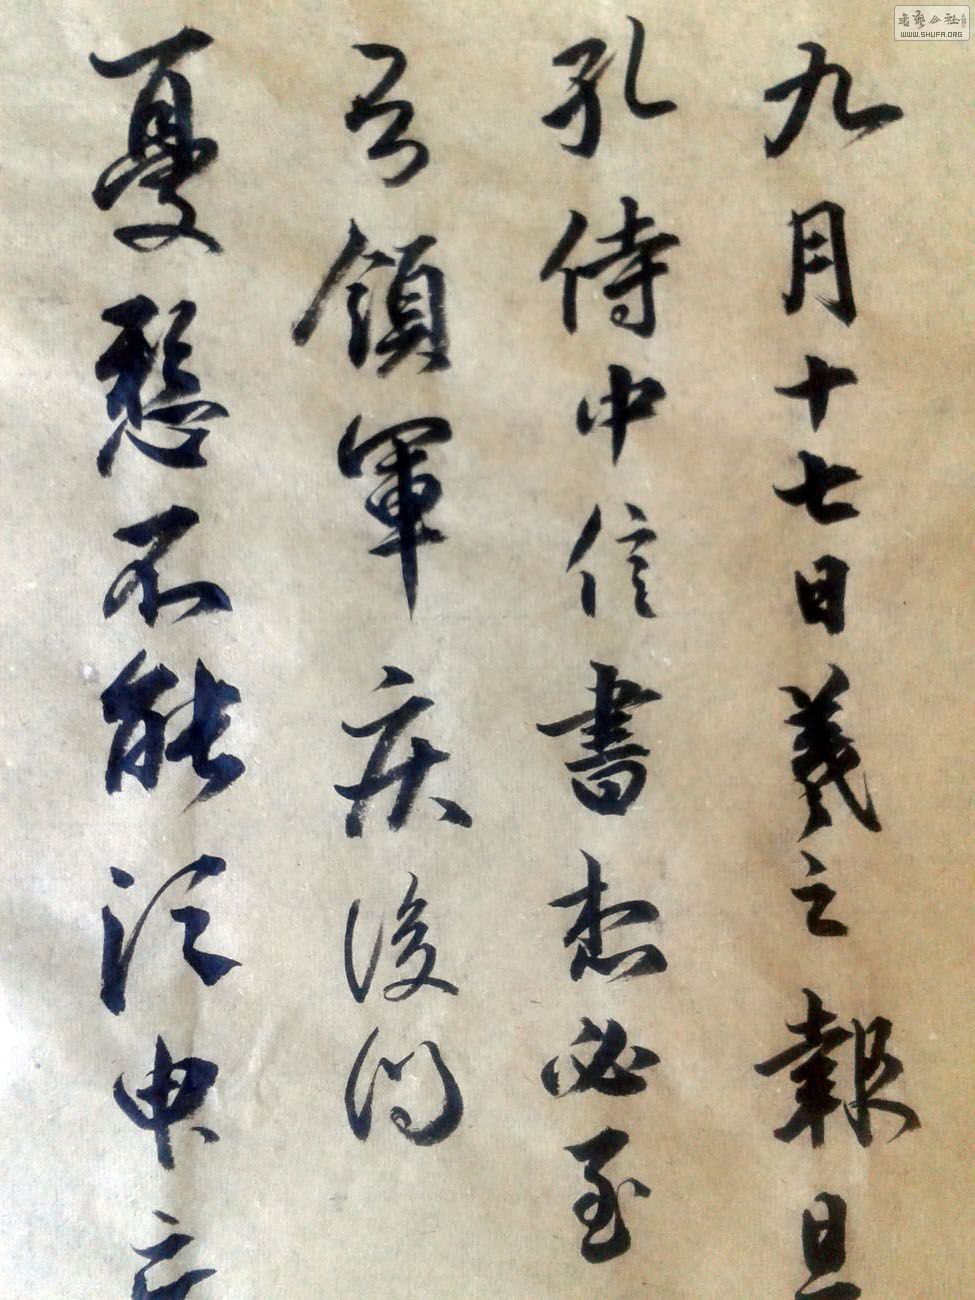 九月十七日羲之報且
孔侍中信書想必至
吾領軍疾後問
憂懸不能須臾
書藝公社
WWW.SHUFA.ORG